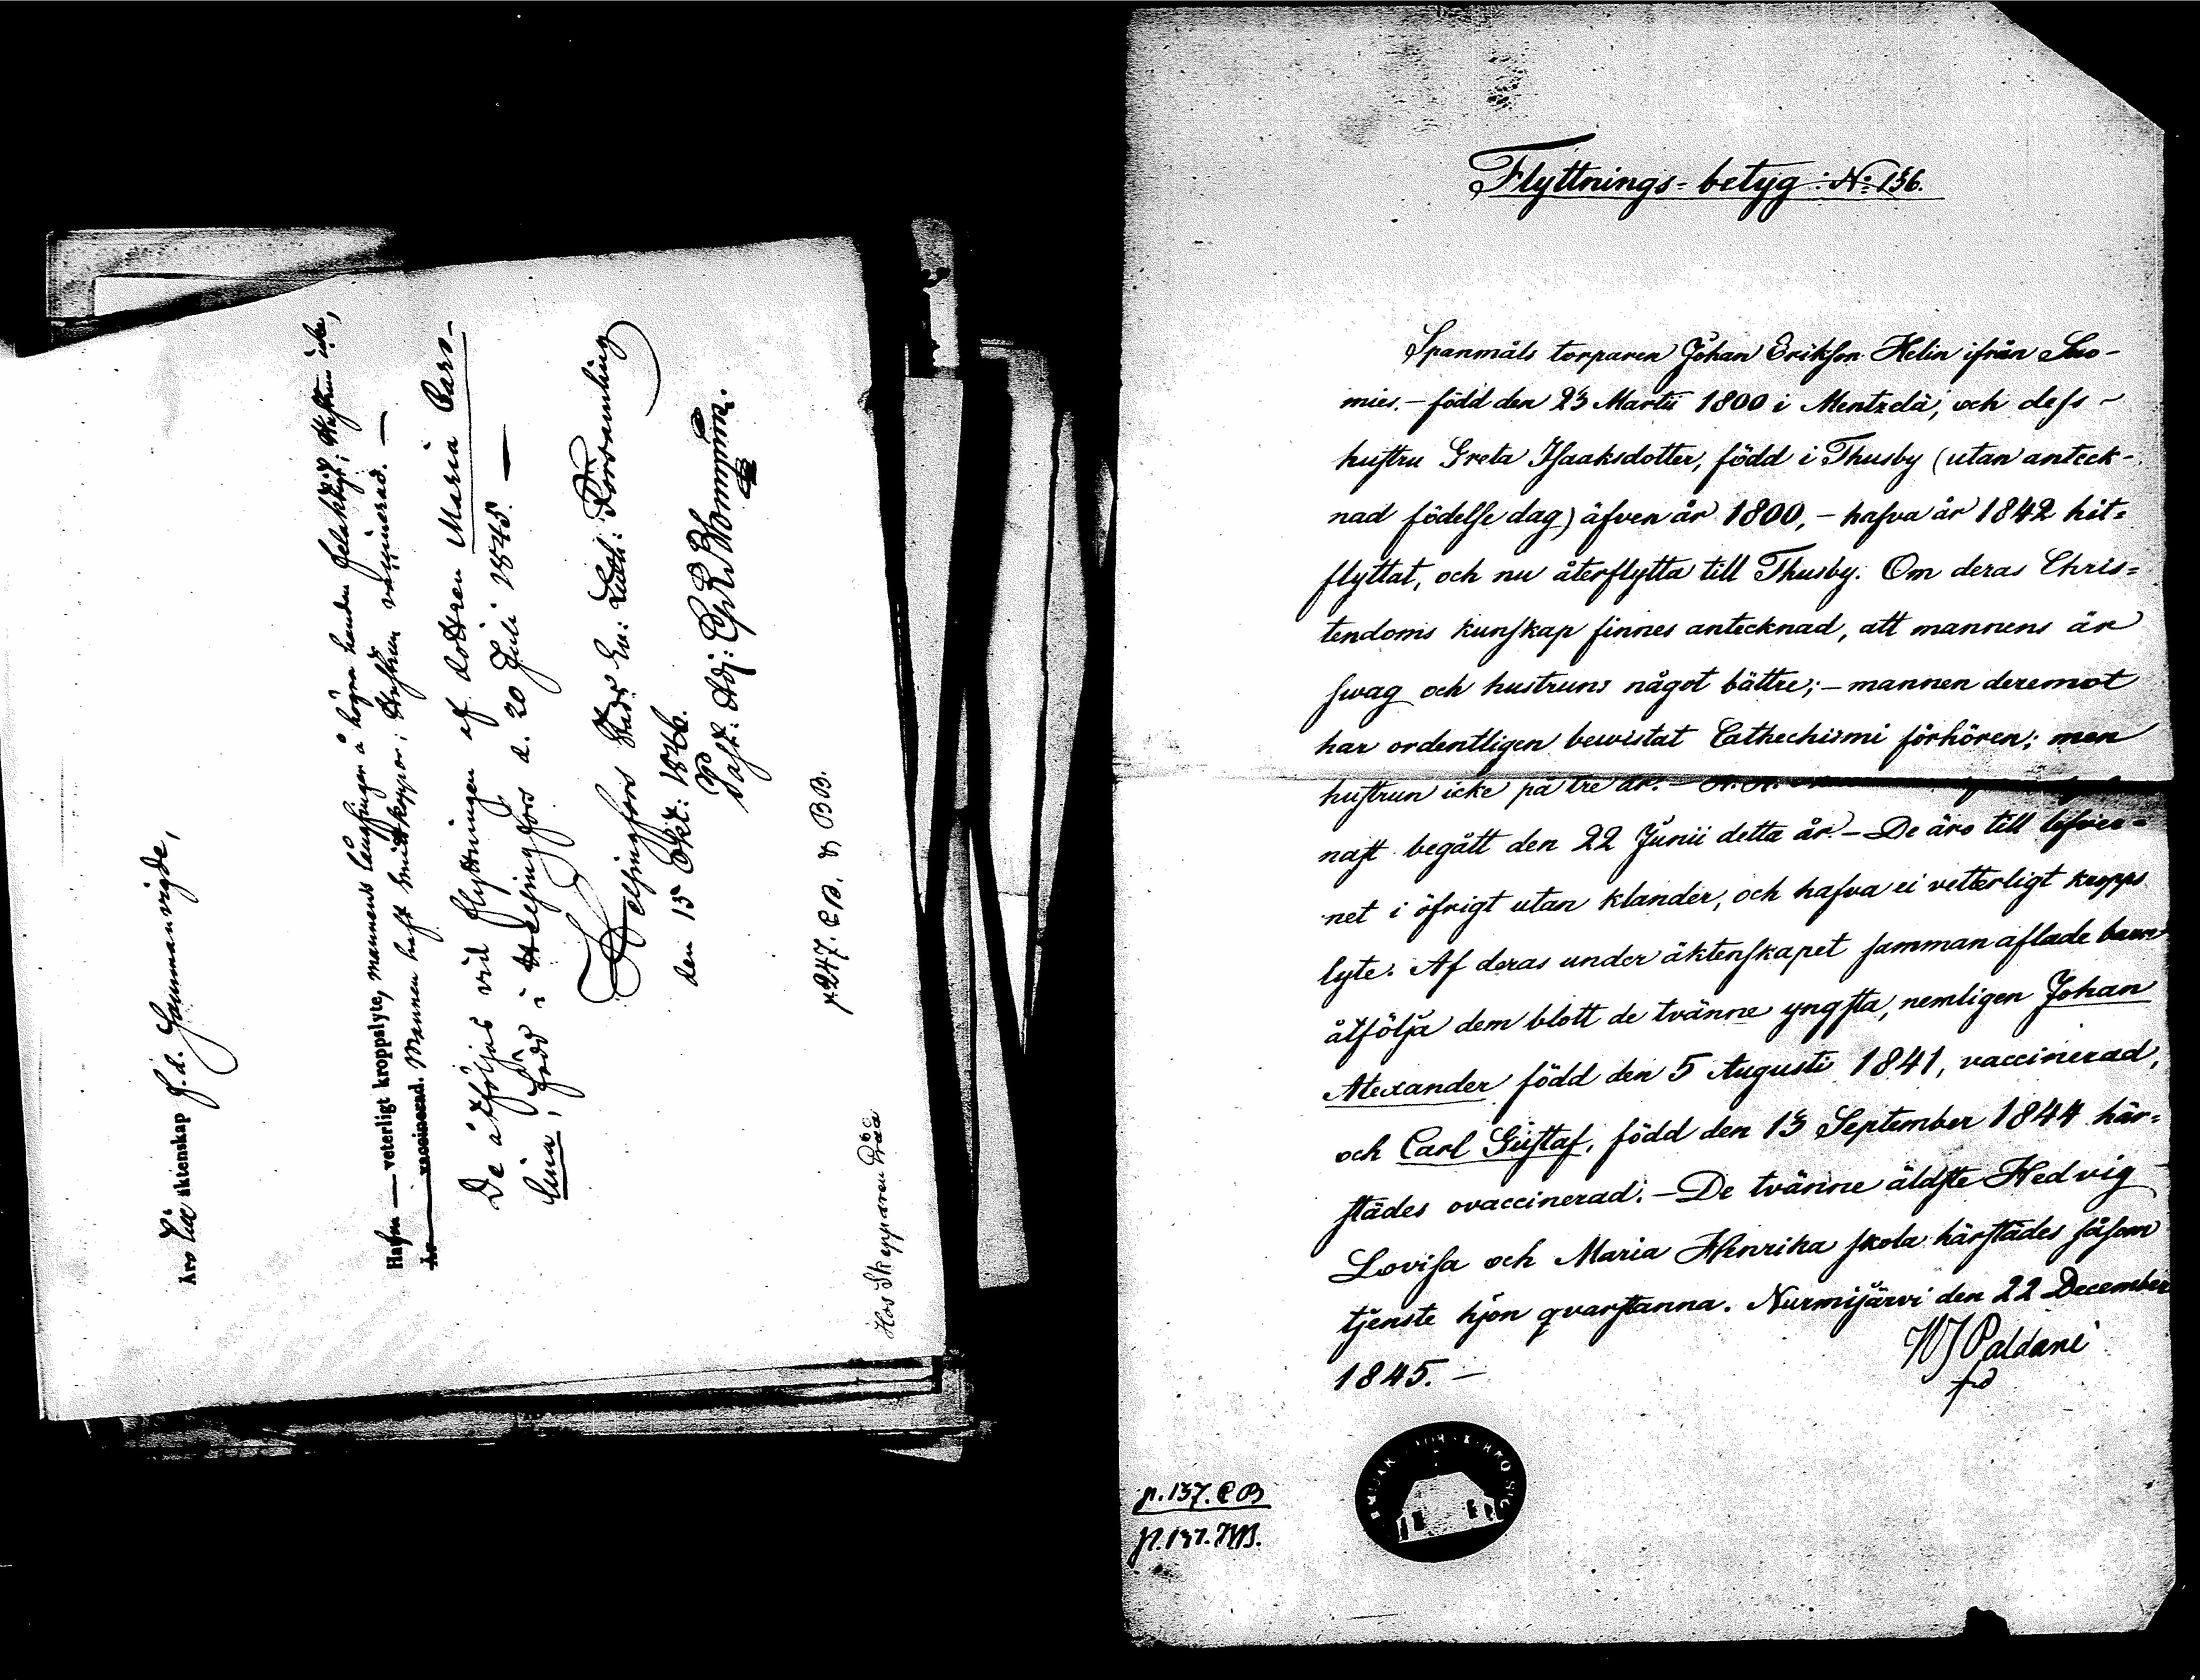 Äro till äktenskap s. d. Sammanvigde,
Hafva — veterligt kroppslyte, mannens långfinger å högra handen Hustrun icke,
är vaccinerad. Mannen haft smittkoppor; Hustrun vaccinerad. —
De åtföljas vid flyttningen af dottren Maria Caro-
lina, född i Helsingfors d. 20 Juli 1845. —
Helsingfors Stads Ev: Luth: Församling
den 15 Okt: 1846.
Past: Adj:
p 247. C B. & B B.
Hos Skepparen
Flyttnings-betyg: No 136.
Spanmåls torparen Johan Eriksson Helin ifrån Suo-
mies. – född den 23 Martii 1800 i Mentzelä, och dess
hustru Greta Isaaksdotter, född i Thusby (utan anteck-
nad födelse dag) äfven år 1800, – hafva år 1842 hit=
flyttat, och nu återflytta till Thusby. Om deras Chris=
tendoms kunskap finnes antecknad, att mannens är
swag och hustruns något bättre; – mannen deremot
har ordentligen bewistat Cathechismi förhören; men
hustrun icke på tre år. –
nast begått den 22 Junii detta år – De äro till lefver=
net i öfrigt utan klander, och hafva ei vetterligt kropps
lyte. Af deras under äktenskapet samman aflade barn
åtfölja dem blott de tvänne yngsta, nemligen Johan
Alexander född den 5 Augusti 1841, vaccinerad,
och Carl Gustaf, född den 13 September 1844 här=
städes ovaccinerad. – De tvänne äldste Hedvig
Lovisa och Maria Henrika skola härstädes såsom
tjenste hjon qvarstanna. Nurmijärvi den 22 December
1845. –
WJ Paldani
p. 137. C B
p. 137. MB.